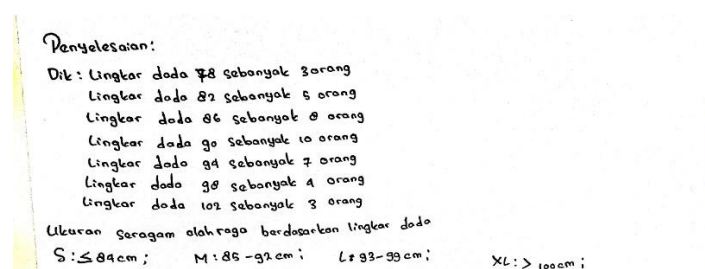 Penyelesaian:
Dik : Lingkar dada 78 sebanyak 3 orang
Lingkar dada 82 sebanyak 5 orang
Lingkar dada 86 sebanyak 8 orang
Lingkar dada 90 sebanyak 10 orang
Lingkar dada 94 sebanyak 7 orang
Lingkar dada 98 sebanyak 4 orang
Lingkar dada 102 sebanyak 3 orang
Ukuran seragam olahraga berdasarkan lingkar dada
S : ≤ 84 cm ; M : 85 - 92 cm ; L : 93 - 99 cm ; XL : > 100 cm ;